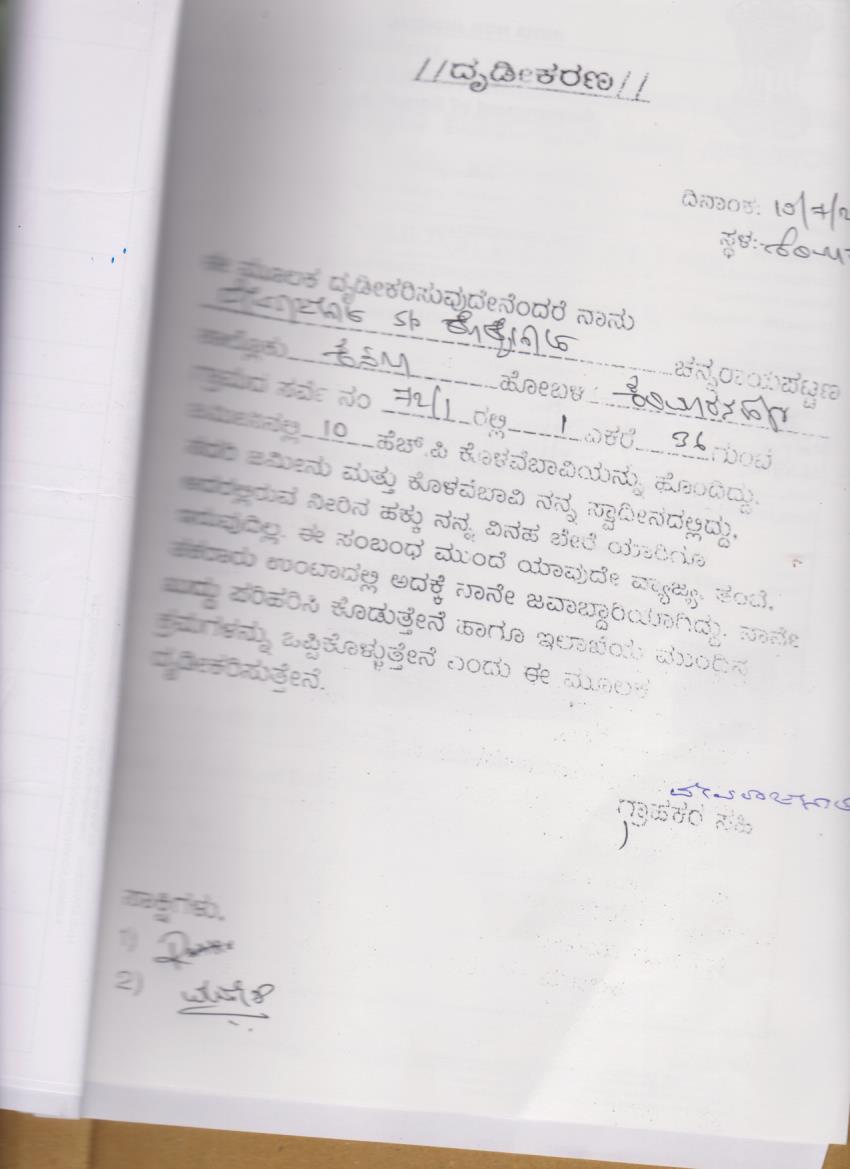 //ದೃಡೀಕರಣ//
ದಿನಾಂಕ:
ಸ್ಥಳ:-
ಈ ಮೂಲಕ ದೃಡೀಕರಿಸುವುದೇನೆಂದರೆ ನಾನು
ಚನ್ನರಾಯಪಟ್ಟಣ
ತಾಲ್ಲೋಕು ಕಸಬಾ ಹೋಬಳಿ
ಗ್ರಾಮದ ಸರ್ವೆ ನಂ 72/1 ರಲ್ಲಿ 1 ಎಕರೆ 36 ಗುಂಟೆ
ಜಮೀನಿನಲ್ಲಿ 10 ಹೆಚ್.ಪಿ ಕೊಳವೆಬಾವಿಯನ್ನು ಹೊಂದಿದ್ದು.
ಸದರಿ ಜಮೀನು ಮತ್ತು ಕೊಳವೆಬಾವಿ ನನ್ನ ಸ್ವಾದೀನದಲ್ಲಿದ್ದು,
ಅದರಲ್ಲಿರುವ ನೀರಿನ ಹಕ್ಕು ನನ್ನ ವಿನಹ ಬೇರೆ ಯಾರಿಗೂ
ಇರುವುದಿಲ್ಲ. ಈ ಸಂಬಂಧ ಮುಂದೆ ಯಾವುದೇ ವ್ಯಾಜ್ಯ, ತಂಟೆ,
ತಕರಾರು ಉಂಟಾದಲ್ಲಿ ಅದಕ್ಕೆ ನಾನೇ ಜವಾಬ್ದಾರಿಯಾಗಿದ್ದು. ನಾನೇ
ಖುದ್ದು ಪರಿಹರಿಸಿ ಕೊಡುತ್ತೇನೆ ಹಾಗೂ ಇಲಾಖೆಯ ಮುಂದಿನ
ಕ್ರಮಗಳನ್ನು ಒಪ್ಪಿಕೊಳ್ಳುತ್ತೇನೆ ಎಂದು ಈ ಮೂಲಕ
ದೃಡೀಕರಿಸುತ್ತೇನೆ.
ಗ್ರಾಹಕರ ಸಹಿ
ಸಾಕ್ಷಿಗಳು.
1)
2) ಮಹೇಶ